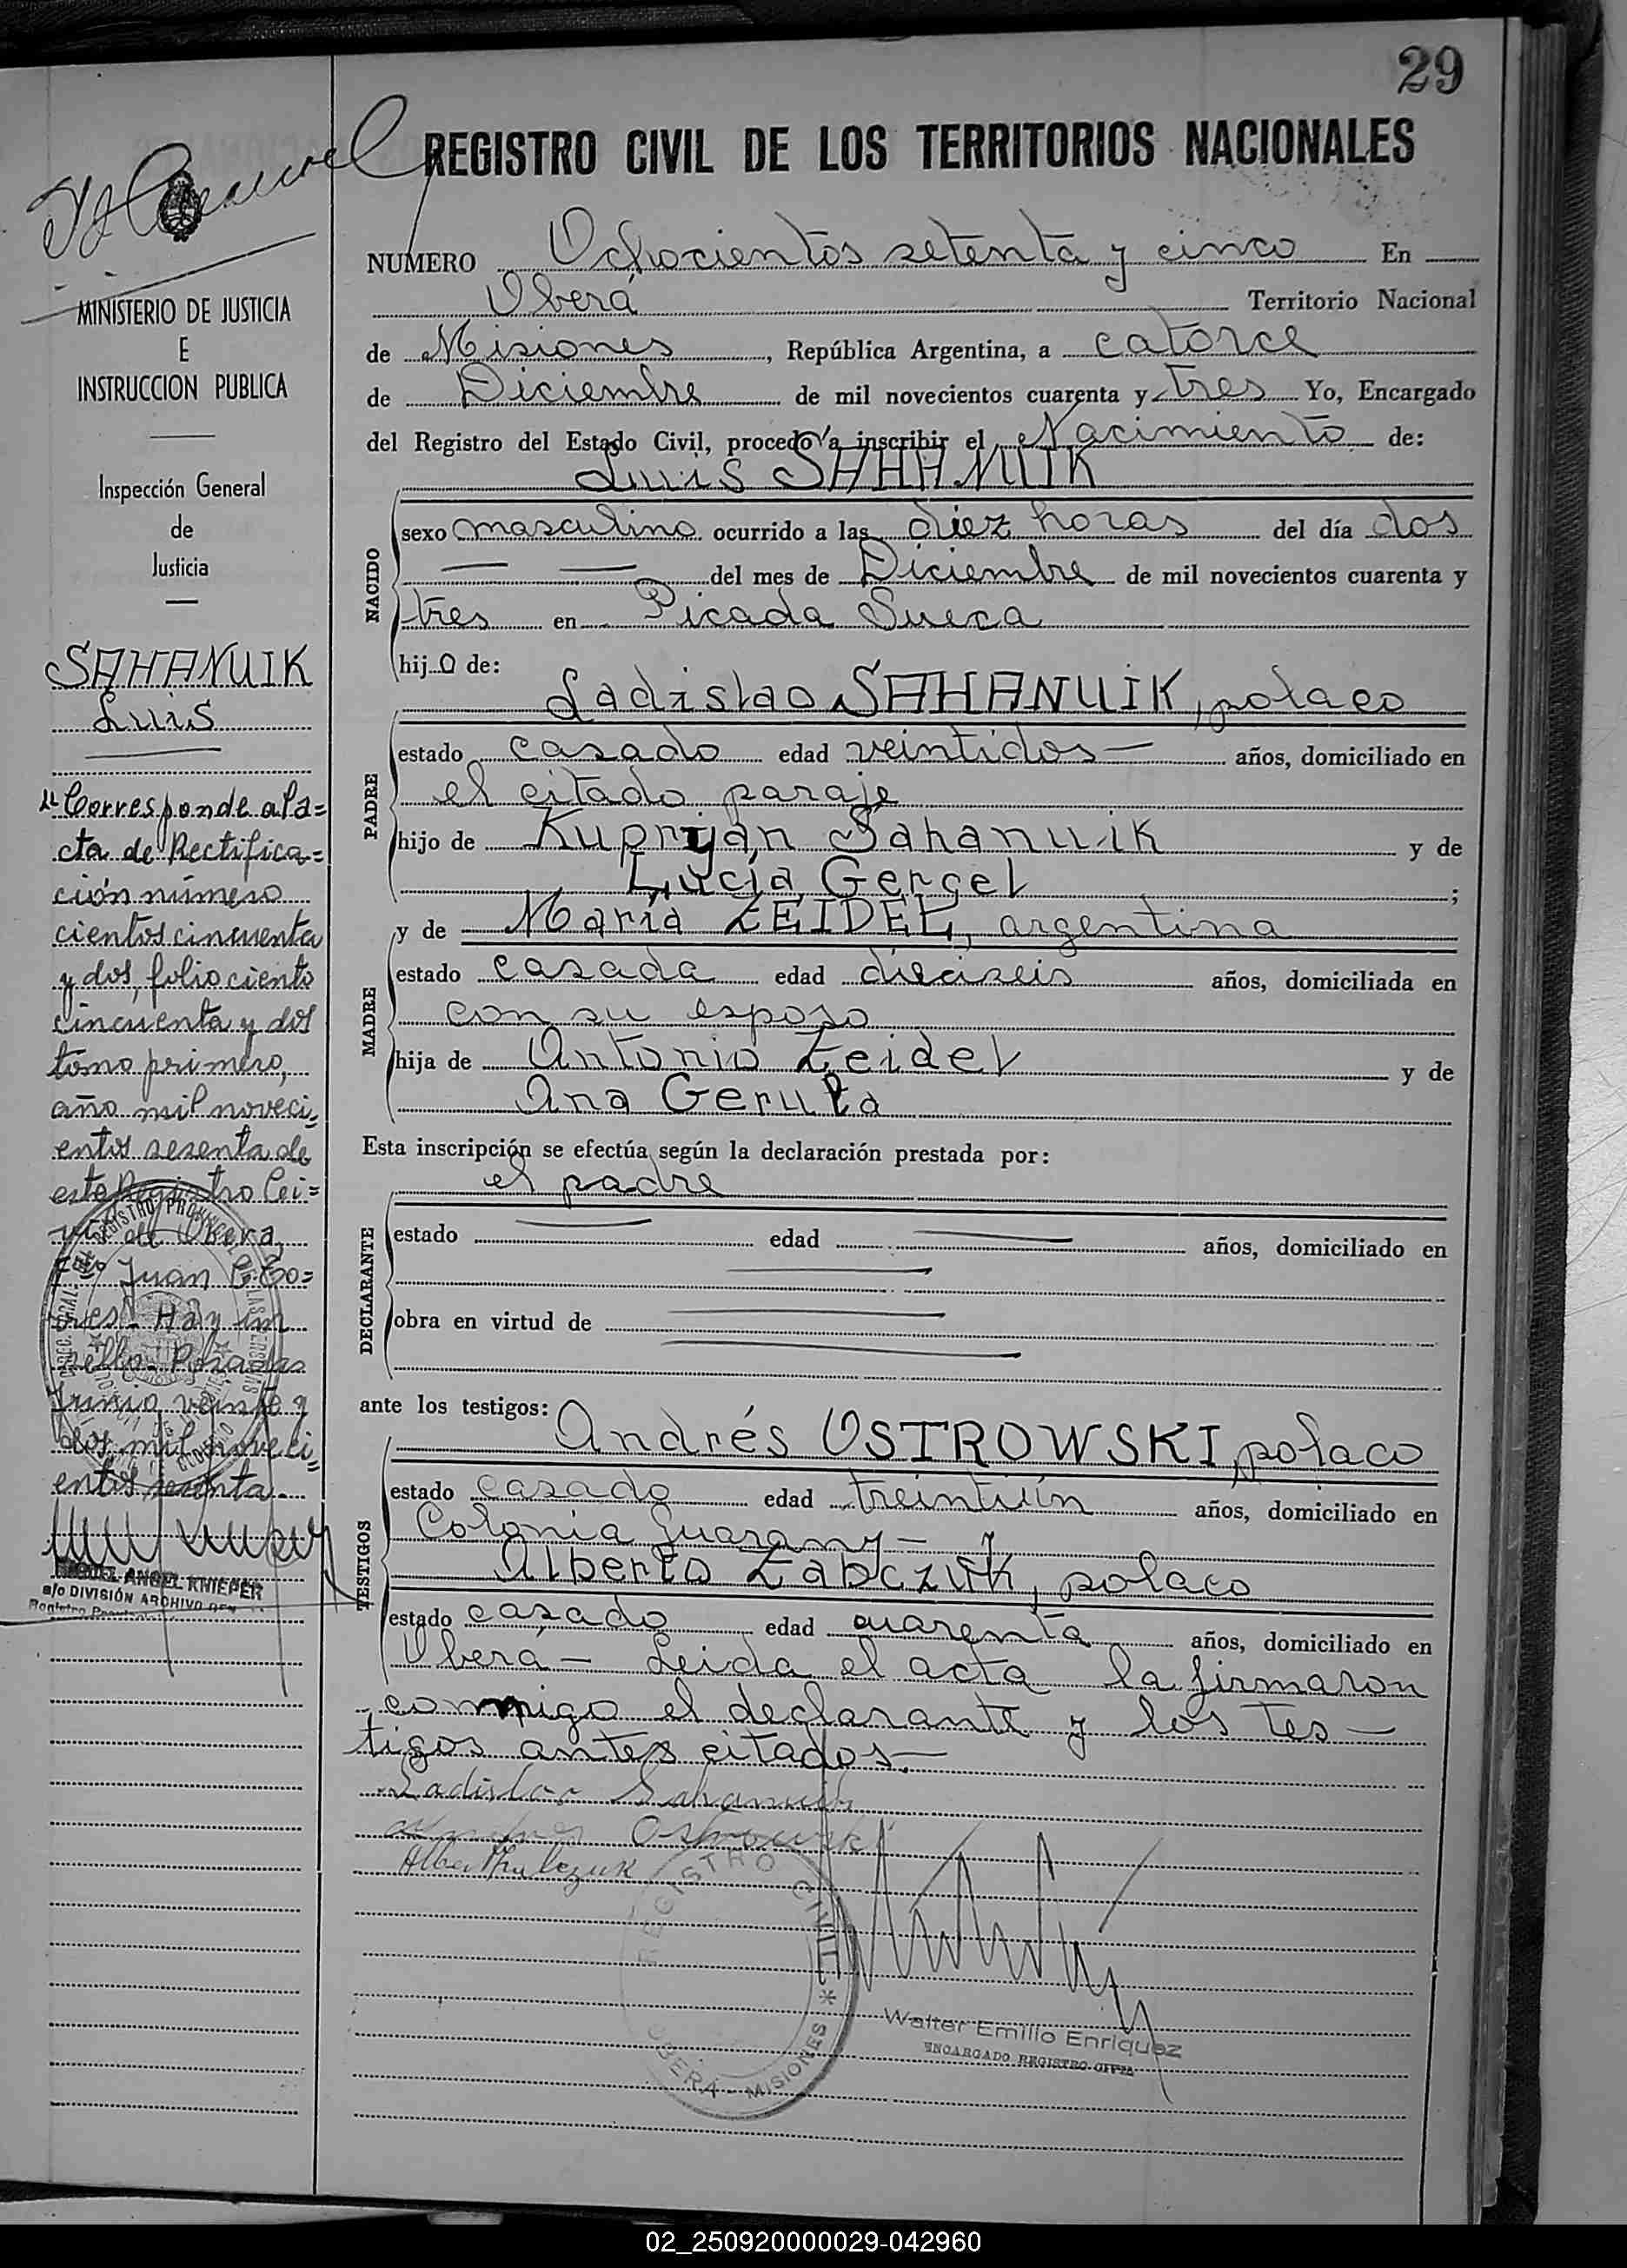 29
REGISTRO CIVIL DE LOS TERRITORIOS NACIONALES
MINISTERIO DE JUSTICIA
E
INSTRUCCION PUBLICA
Inspección General
de
Justicia
SAHANUIK
Luis
Corresponde al a=
cta de Rectifica=
ción número
cientos cincuenta
y dos, folio ciento
cincuenta y dos
tomo primero,
año mil noveci=
entos sesenta de
este Registro Ci=
vil de Oberá,
Juan
Hay un
sello. Posadas
Junio veinte y
dos mil noveci=
entos sesenta.
MIGUEL ANGEL KNIEPER
a/c DIVISIÓN ARCHIVO
NUMERO Ochocientos setenta y cinco En
Oberá Territorio Nacional
de Misiones, República Argentina, a catorce
de Diciembre de mil novecientos cuarenta y tres Yo, Encargado
del Registro del Estado Civil, procedo a inscribir el Nacimiento de:
Luis SAHANUIK
NACIDO
sexo masculino ocurrido a las diez horas del día dos
del mes de Diciembre de mil novecientos cuarenta y
tres en Picada Sueca
hijo de:
Ladislao SAHANUIK, polaco
PADRE
estado casado edad veintidos años, domiciliado en
el citado paraje
hijo de Kupriján Sahanuik y de
Lucía Gergel ;
y de María ZEIDEL, argentina
MADRE
estado casada edad dieciseis años, domiciliada en
con su esposo
hija de Antonio Zeidel y de
Ana Geruta
Esta inscripción se efectúa según la declaración prestada por:
el padre
DECLARANTE
estado edad años, domiciliado en
obra en virtud de
ante los testigos:
Andrés OSTROWSKI, polaco
TESTIGOS
estado casado edad treintiún años, domiciliado en
Colonia Guarany – y
Alberto Zabczuk, polaco
estado casado edad cuarenta años, domiciliado en
Oberá – Leida el acta la firmaron
conmigo el declarante y los tes–
tigos antes citados.–
Ladislao Sahanuik
Ostrowski
REGISTRO CIVIL
OBERÁ - MISIONES
Walter Emilio Enriquez
ENCARGADO REGISTRO CIVIL
02_250920000029-042960